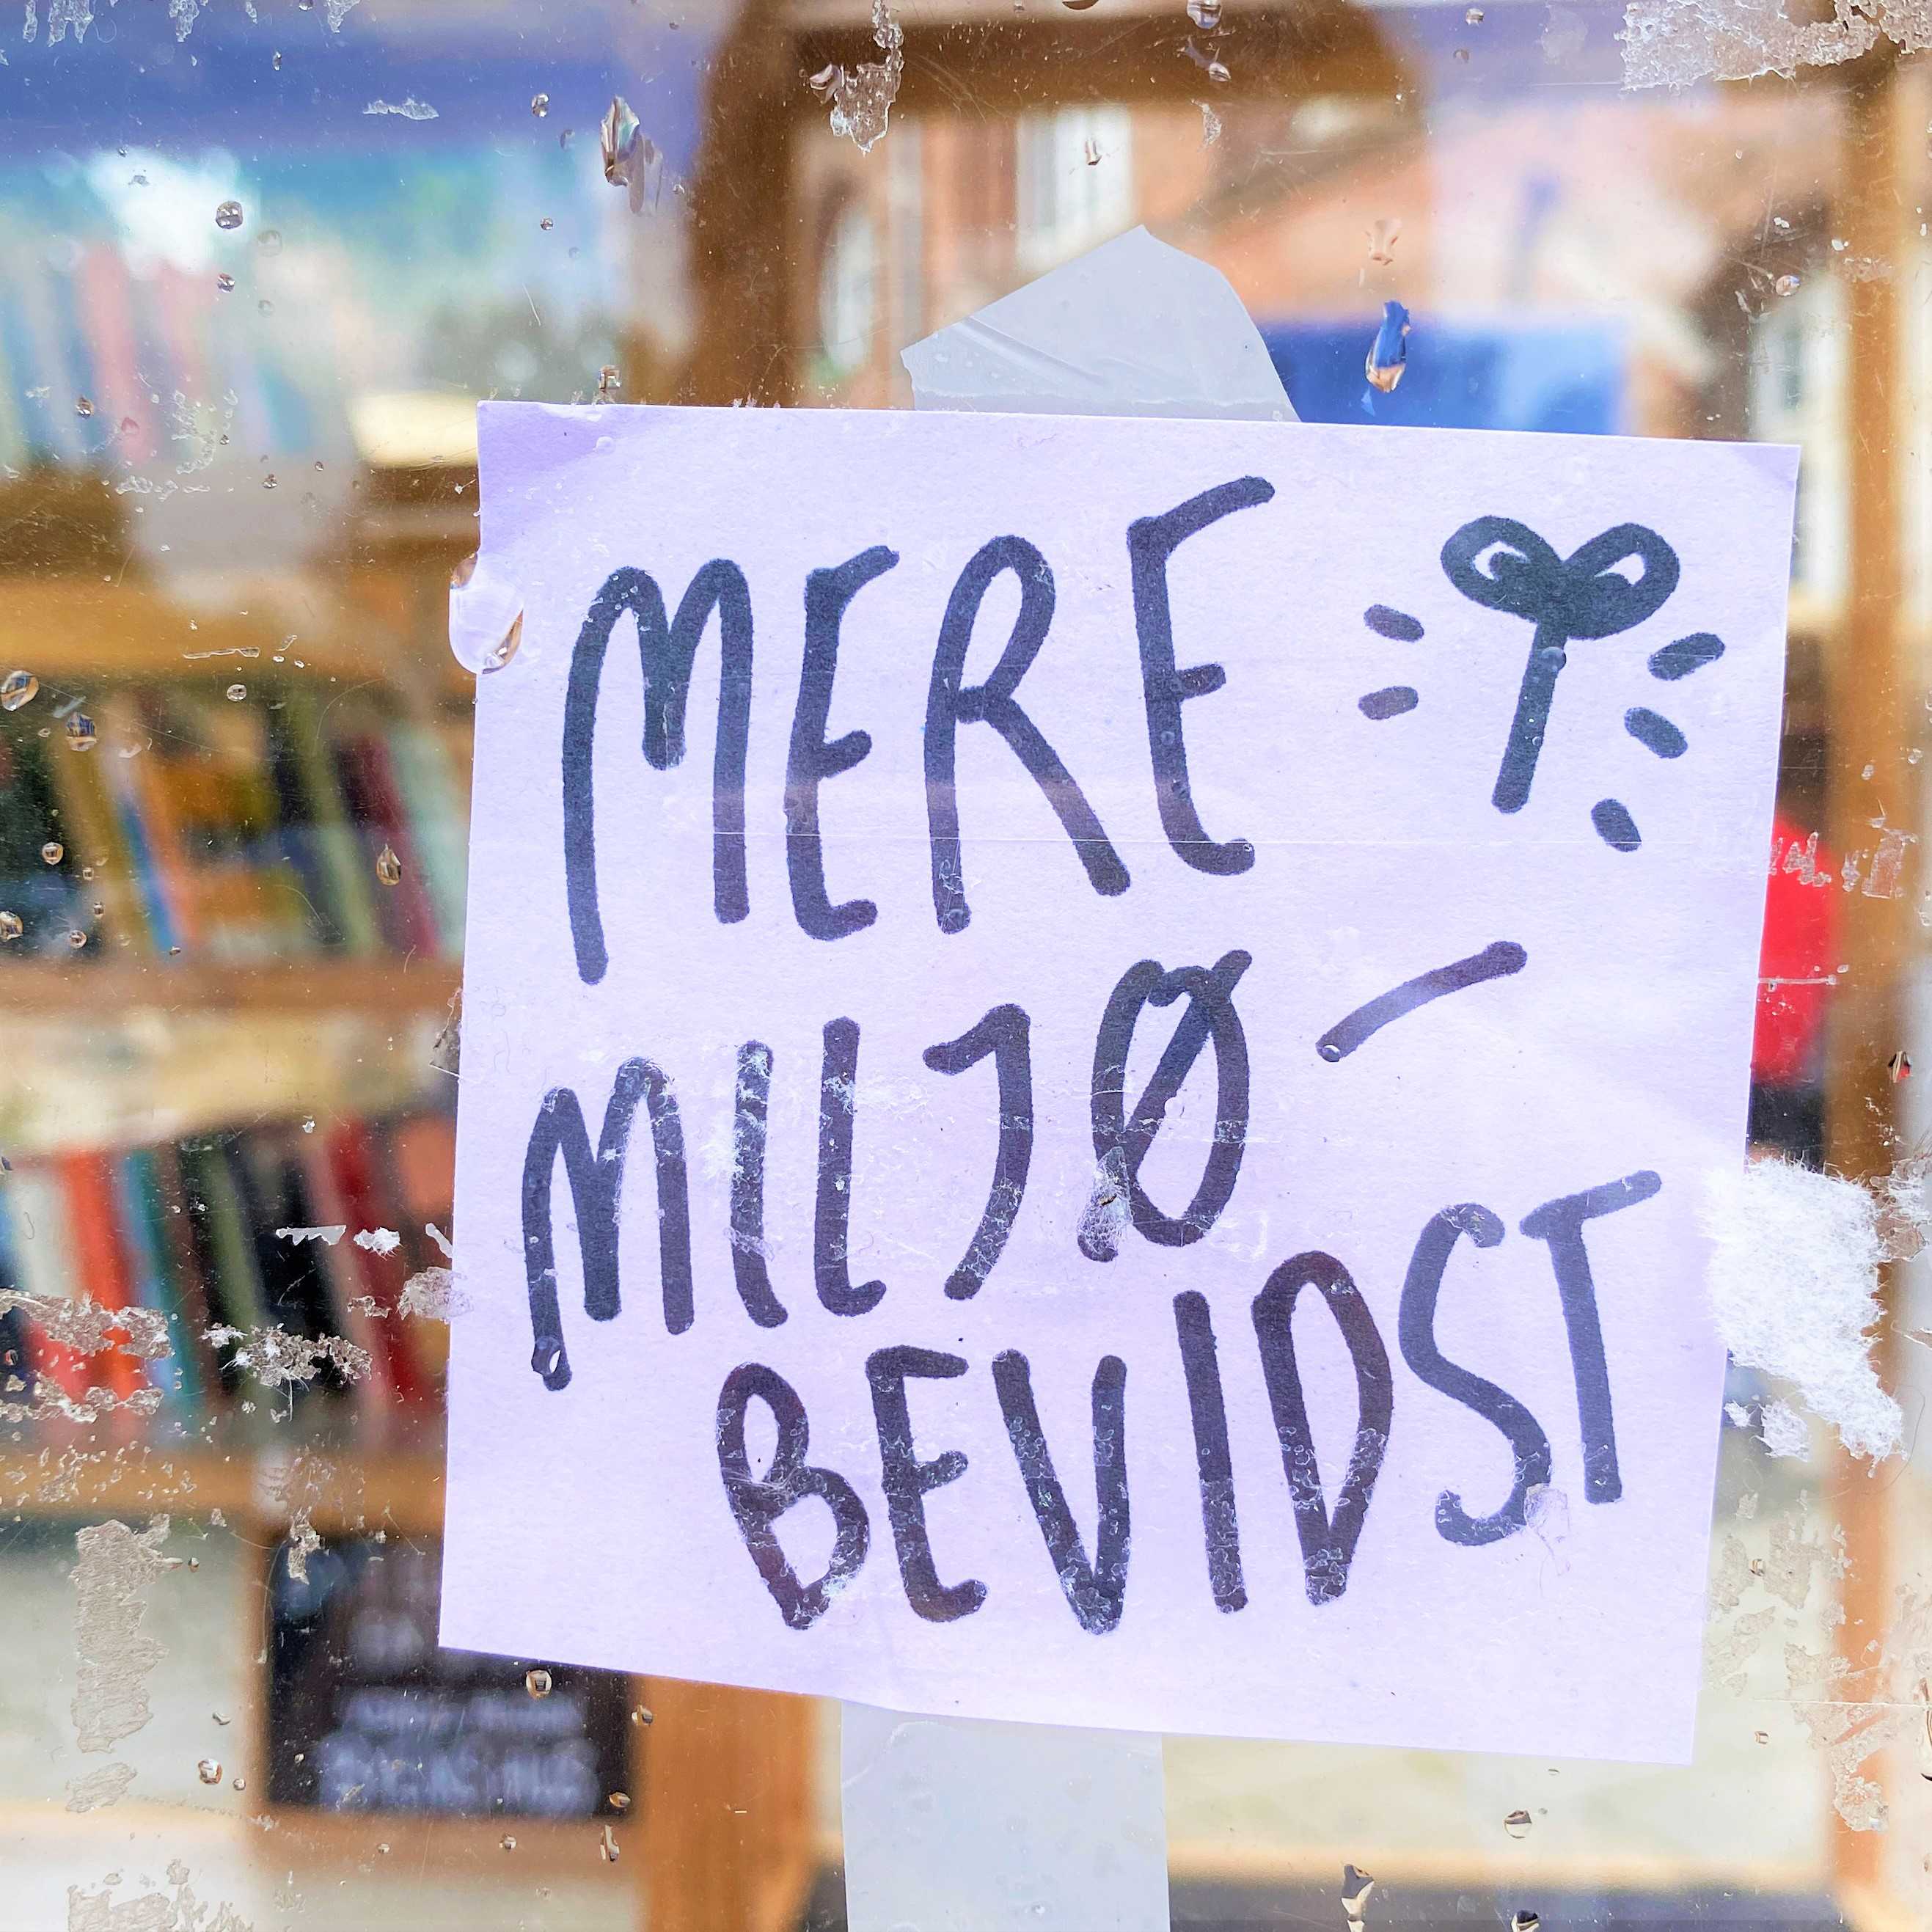 MERE
MILJØ-
BEVIDST